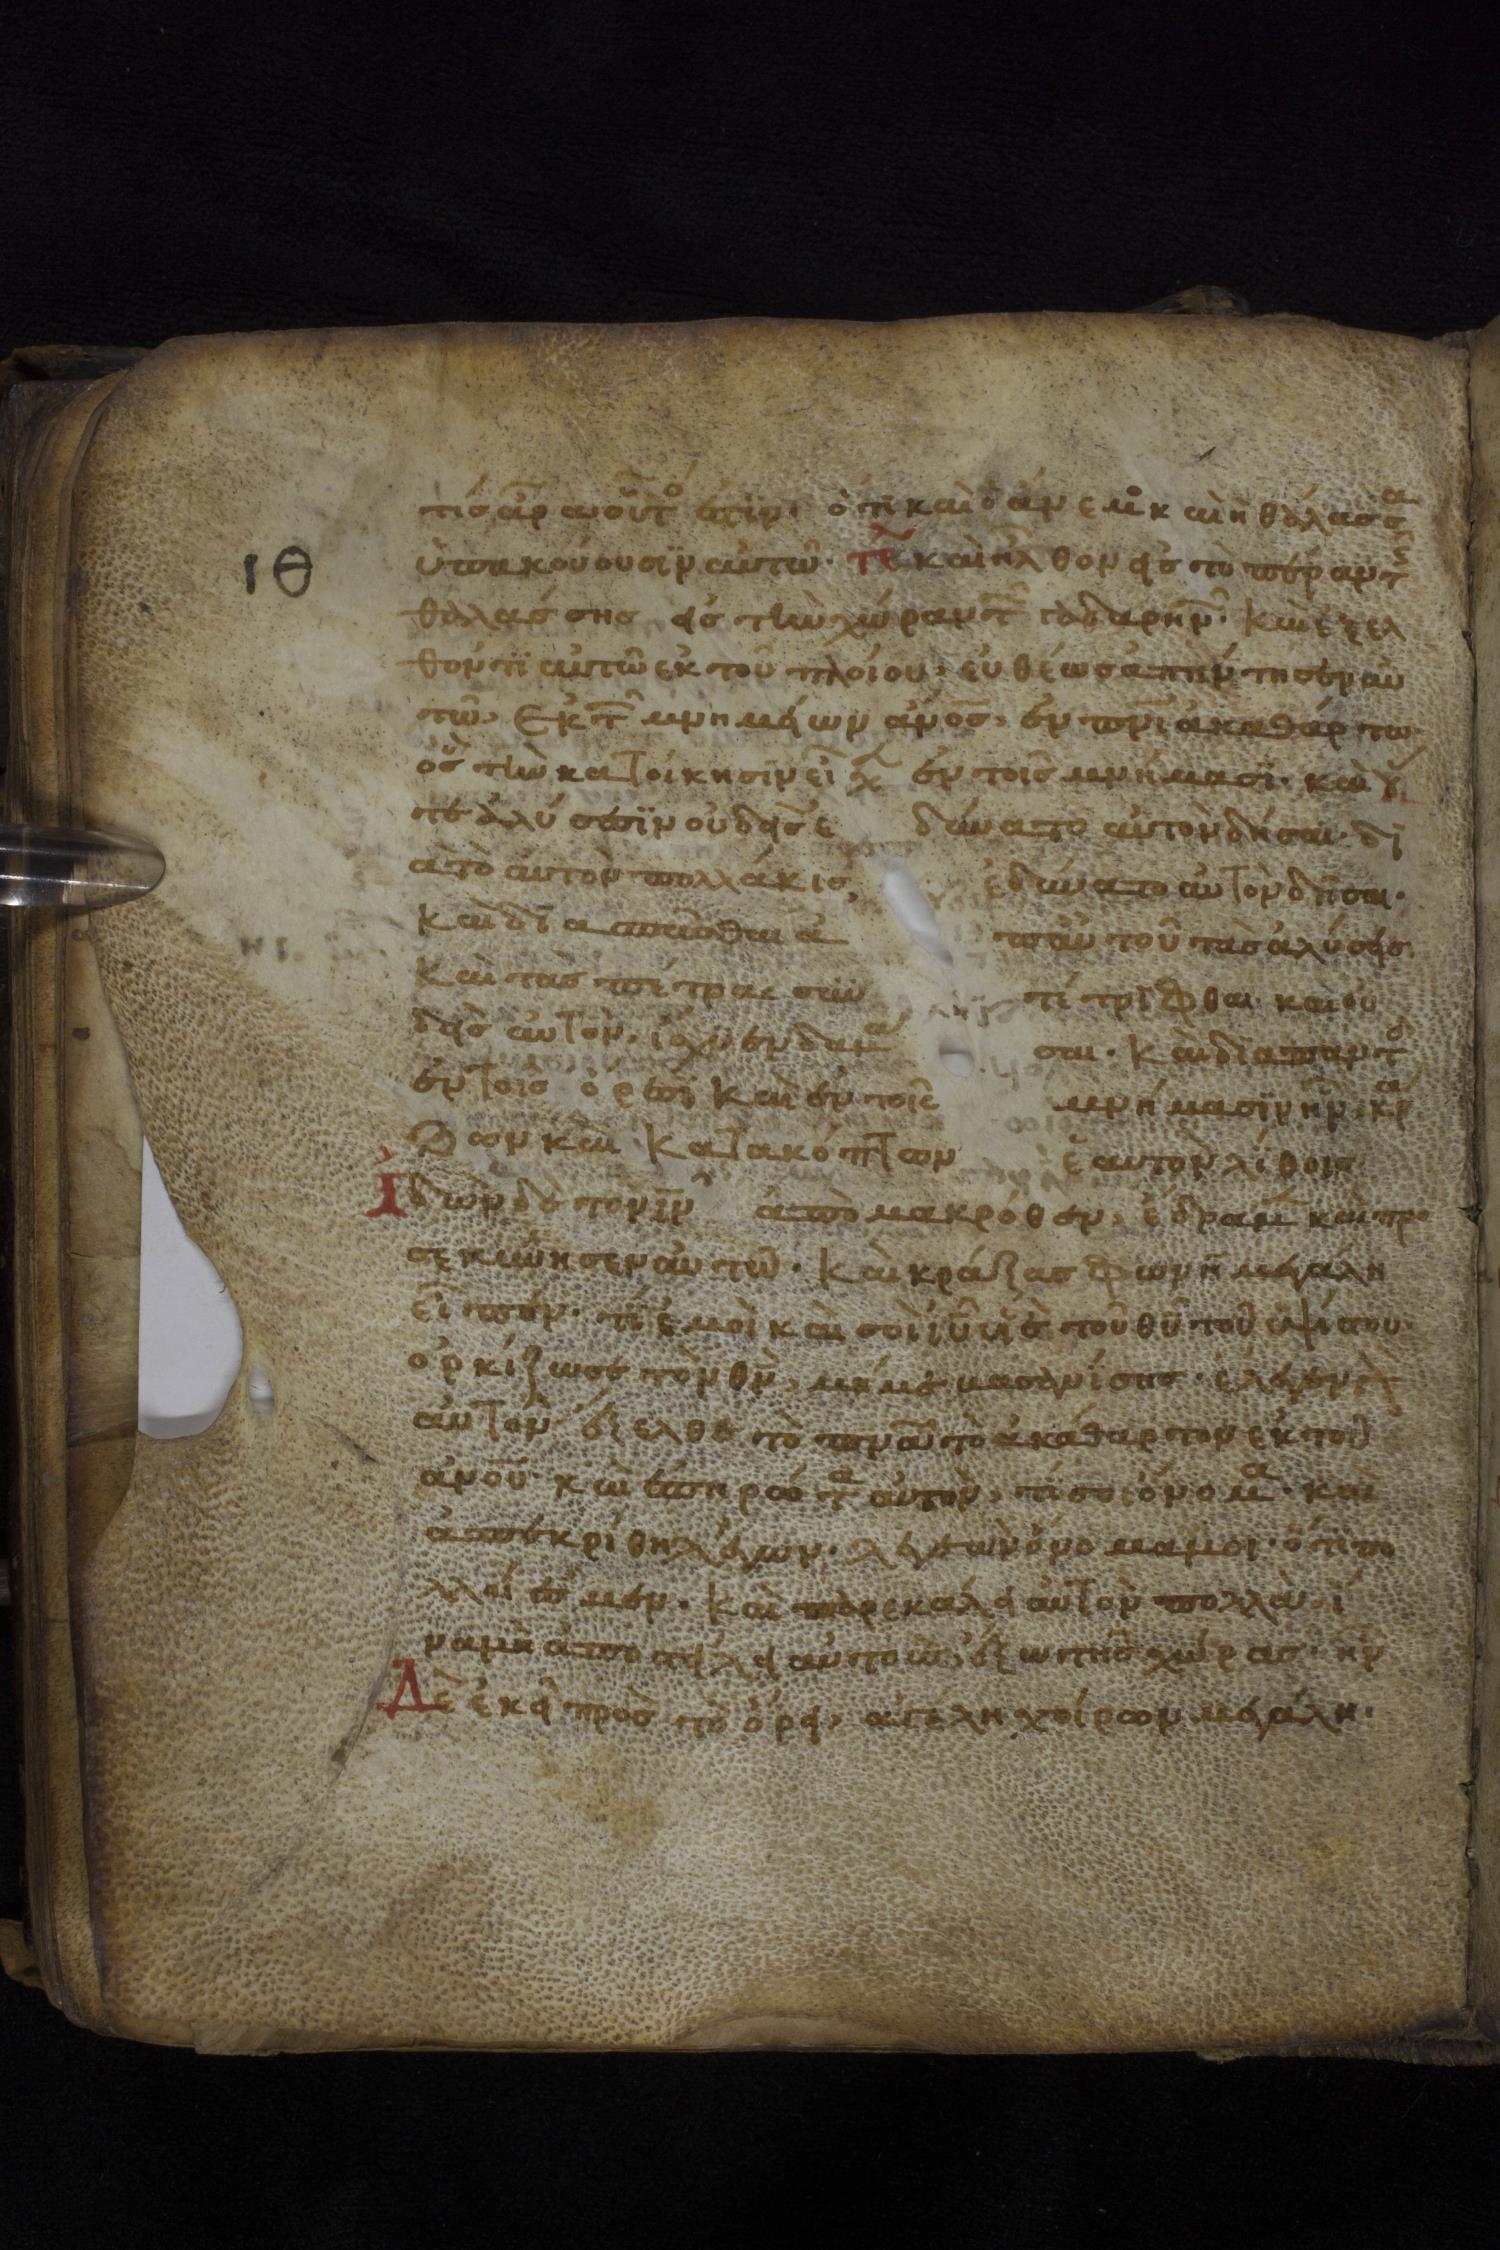 τίς ἄρα οὗτος ἐστϊν· ὅτι καὶ ὁ ἄνεμος καὶ ἡ θάλασσα
ὑπακούουσϊν αὐτῶ· τε καὶ ἦλθον εἰς τὸ πέραν τῆς
ΙΘ
θαλάσσης εἰς τὴν χώραν τῶν γαδαρηνῶν· Καὶ ἐξελ
θόντϊ αὐτῶ ἐκ τοῦ πλοίου, εὐθέως ἀπήντησεν αὐ
τῶ, Ἐκ τῶν μνημείων ἀνος, ἐν πνι ἀκαθάρτω
ὃς τὴν κατοίκησϊν εἶχεν ἐν τοῖς μνήμασϊ· καὶ
δύνατο αὐτὸν δῆσαι· δϊ
ατὸ αὐτὸν πολλάκις, ἐδύνατο αὐτὸν δῆσαι·
Καὶ διασπᾶσθαι ὑπ αὐτοῦ τὰς ἁλύσεις
Καὶ τὰς πέτρας συν τετρῖφθαι· καὶ οὐ
δεὶς αὐτὸν· ἰσχυεν δαμά σαι· Καὶ διαπαντὸς
ἐν τοῖς ὄρεσι Καὶ ἐν τοῖς μνήμασϊν ἦν, κρά
ζων καὶ Κατακόπτων ἑαυτὸν λίθοις
Ἰδὼν δὲ τὸν ιν ἀπὸ μακρόθεν, ἔδραμε καὶ προ
σεκύνησεν αὐτῶ· Καὶ κράξας φωνῆ μεγάλη
εἶπεν· τί ἐμοὶ καὶ σοὶ ιυ υἱὲ τοῦ θυ τοῦ ὑψίστου·
ὁρκίζω σε τὸν θν, μή με βασανίσης· ἔλεγεν γὰρ
αὐτὸν ἔξελθε τὸ πνα τὸ ἀκάθαρτον ἐκ τοῦ
ἀνου· καὶ ἐπηρώτα αὐτὸν, τί σοι ὄνομα· καὶ
ἀπεκρίθη λέγων· λεγεὼν ὄνομα μοι· ὅτι πο
λλοί ἐσμεν· Καὶ παρεκάλει αὐτὸν πολλὰ, ἵ
να μὴ ἀποστείλει αὐτοὺς ἔξω τῆς χώρας· ἦν
Δὲ ἐκεῖ πρὸς τὸ ὄρει, ἀγέλη χοίρων μεγάλη·